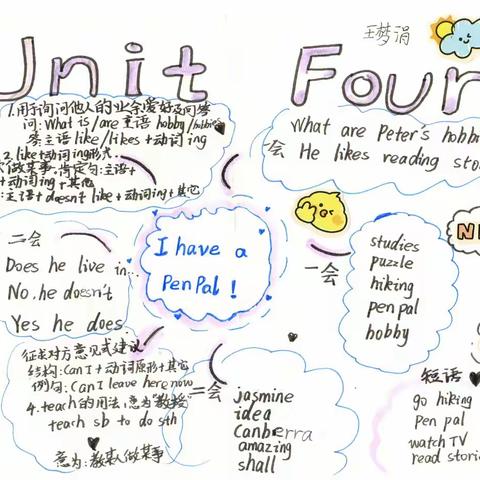 Unit Four
王梦涓
1.用于询问他人的业余爱好及问答
问: What is/are 主语 hobby/hobbies
答主语 like/likes +动词ing
2. like+动词ing形式
做某事.肯定句:主语+
+动词ing+其他
:主语+doesn't like+动词ing+其它
What are Peter's hobb
一会 He likes reading sto
二会
Does he live in...
No. he doesn't
Yes he does.
I have a
Pen Pal!
一会
studies
puzzle
hiking
pen pal
hobby
征求对方意见或建议
结构: Can I + 动词原形+其它
例句: Can I leave here now
4. teach的用法,意为"教授"
teach sb to do sth
意为:教某人做某事
二会
jasmine
idea
Canberra
amazing
shall
短语
go hiking
Pen pal
watch TV
read stori